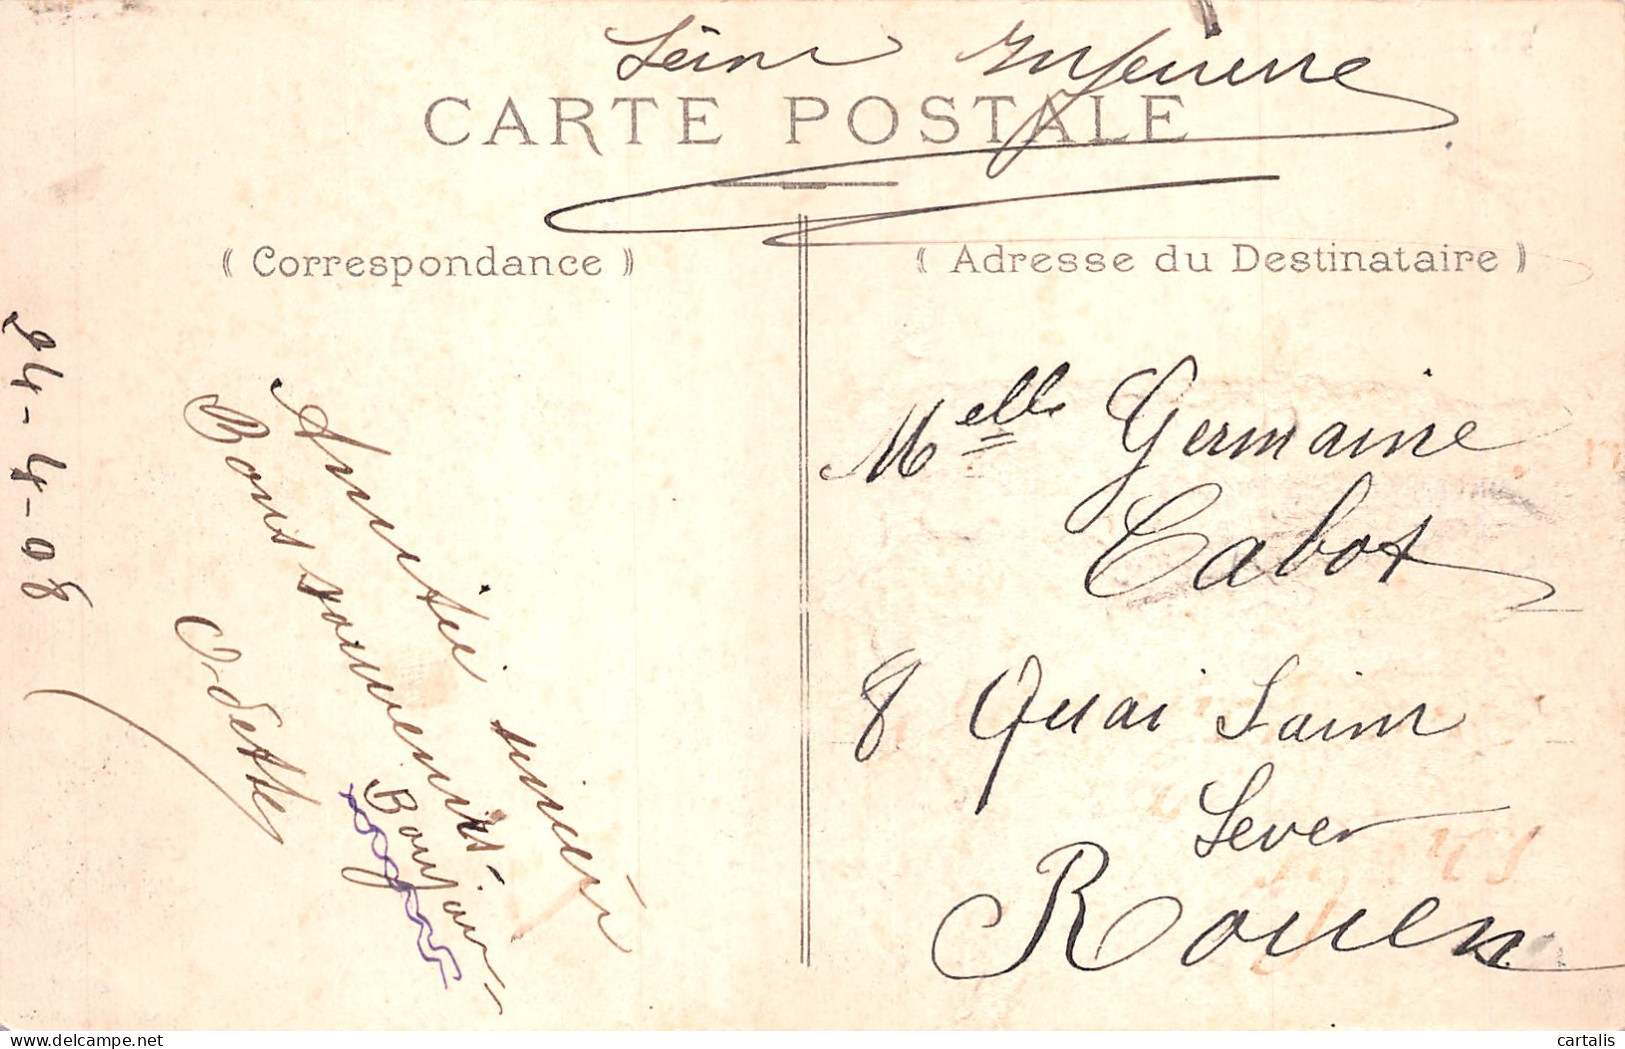 Seine Inferieure
CARTE POSTALE
( Correspondance )
( Adresse du Destinataire )
24-4-08
Amitié sincèr
Bons souvenirs.
Odette
Bonjour
Melle Germaine
Cabot
8 Quai Saint
Sever
Rouen
cartalis
delcampe.net